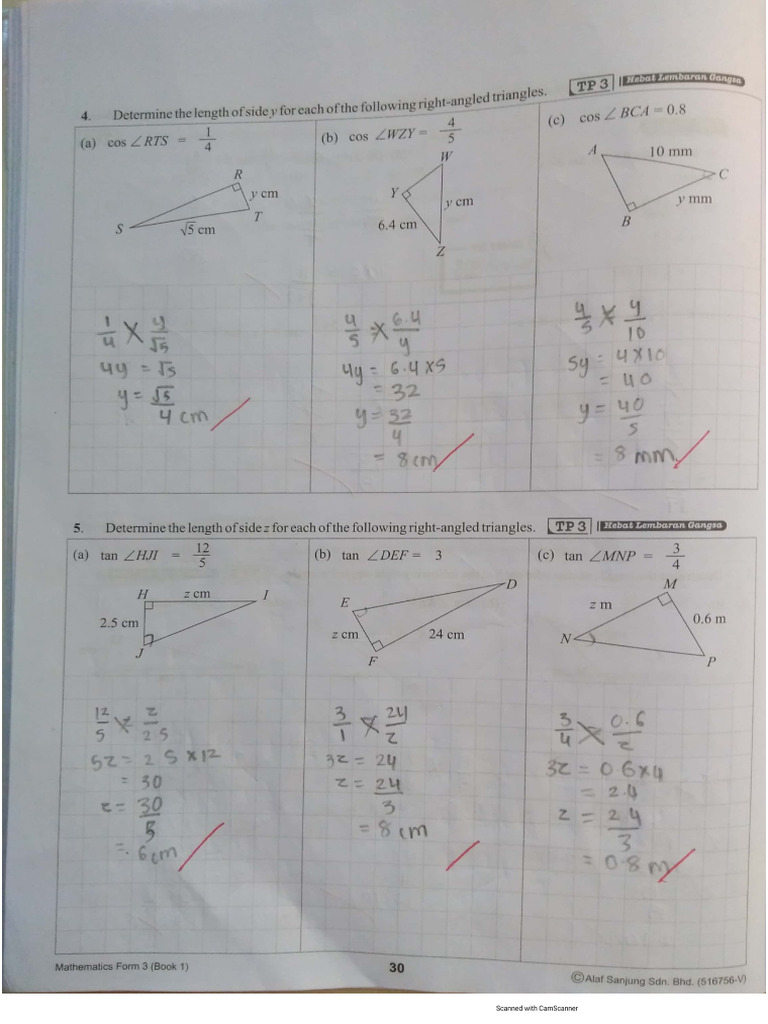 4. Determine the length of side y for each of the following right-angled triangles. TP 3 Hebat Lembaran Gangsa
(a) cos ∠RTS = 1/4
R
y cm
T
S
√5 cm
1/4 × y/√5
4y = √5
y = √5/4 cm
(b) cos ∠WZY = 4/5
W
Y
y cm
6.4 cm
Z
4/5 = 6.4/y
4y = 6.4 × 5
= 32
y = 32/4
= 8 cm
(c) cos ∠BCA = 0.8
A
10 mm
C
y mm
B
4/5 × y/10
5y = 4 × 10
= 40
y = 40/5
= 8 mm
5. Determine the length of side z for each of the following right-angled triangles. TP 3 Hebat Lembaran Gangsa
(a) tan ∠HJI = 12/5
H z cm I
2.5 cm
J
12/5 × z/2.5
5z = 2.5 × 12
= 30
z = 30/5
= 6 cm
(b) tan ∠DEF = 3
D
E
z cm
24 cm
F
3/1 × 24/z
3z = 24
z = 24/3
= 8 cm
(c) tan ∠MNP = 3/4
M
z m
0.6 m
N
P
3/4 × 0.6/z
3z = 0.6 × 4
= 2.4
z = 2.4/3
= 0.8 m
Mathematics Form 3 (Book 1)
30
© Alaf Sanjung Sdn. Bhd. (516756-V)
Scanned with CamScanner